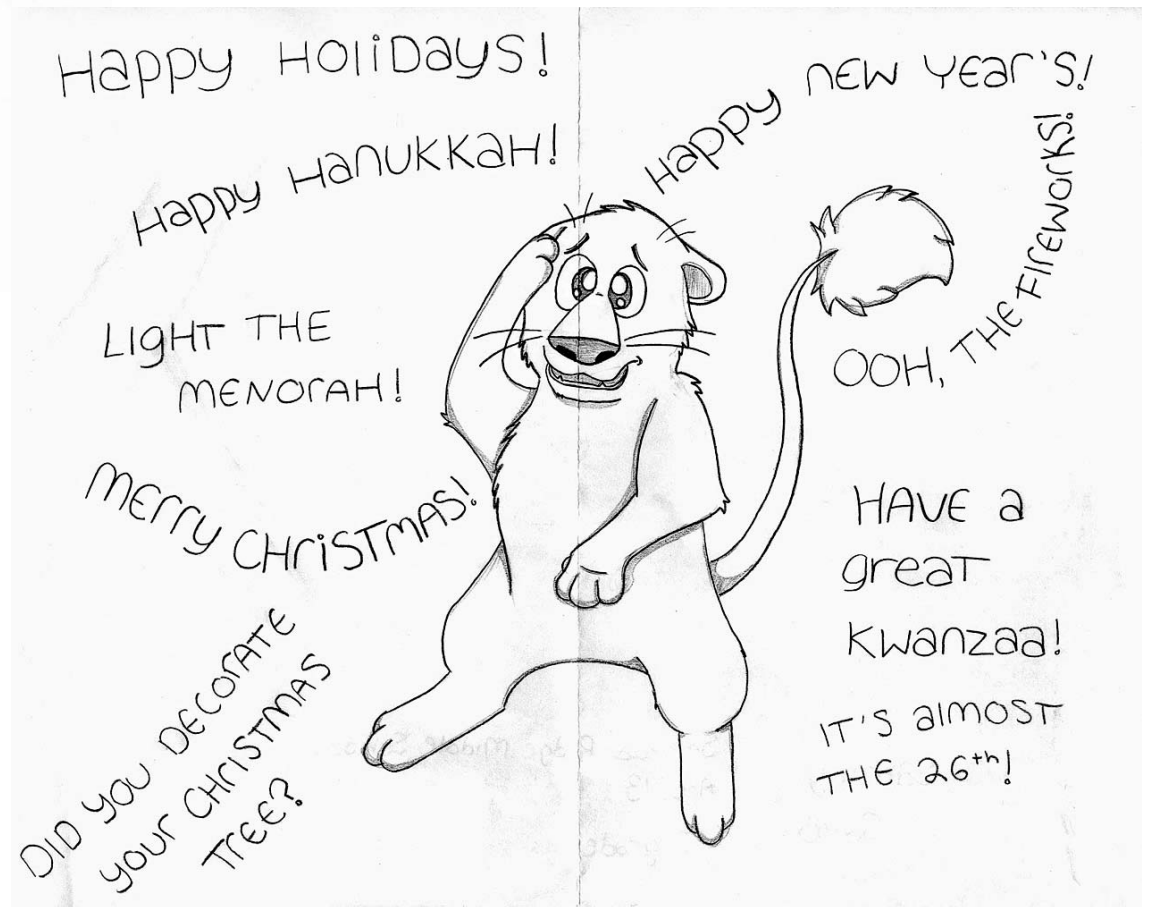 Happy Holidays!
Happy Hanukkah!
Light the
menorah!
Merry Christmas!
Did you decorate
your Christmas
tree?
Happy New Year's!
Ooh, the fireworks!
Have a
great
Kwanzaa!
It's almost
the 26th!